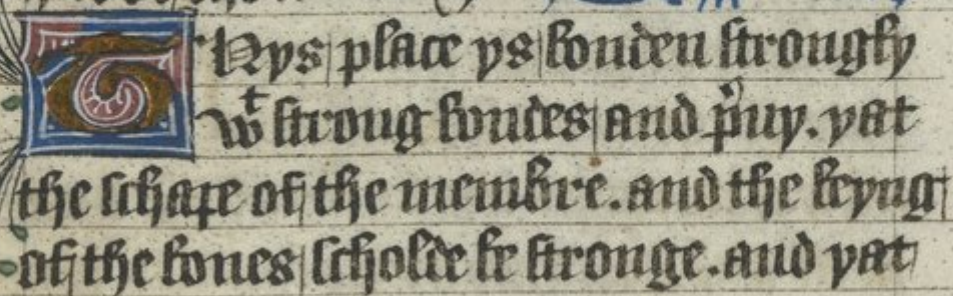 Thys place ys bonden strongly
wᵗ strong bondes and pⁱuy. yat
the schape of the membre. and the beyng
of the bones scholde be stronge. and yat